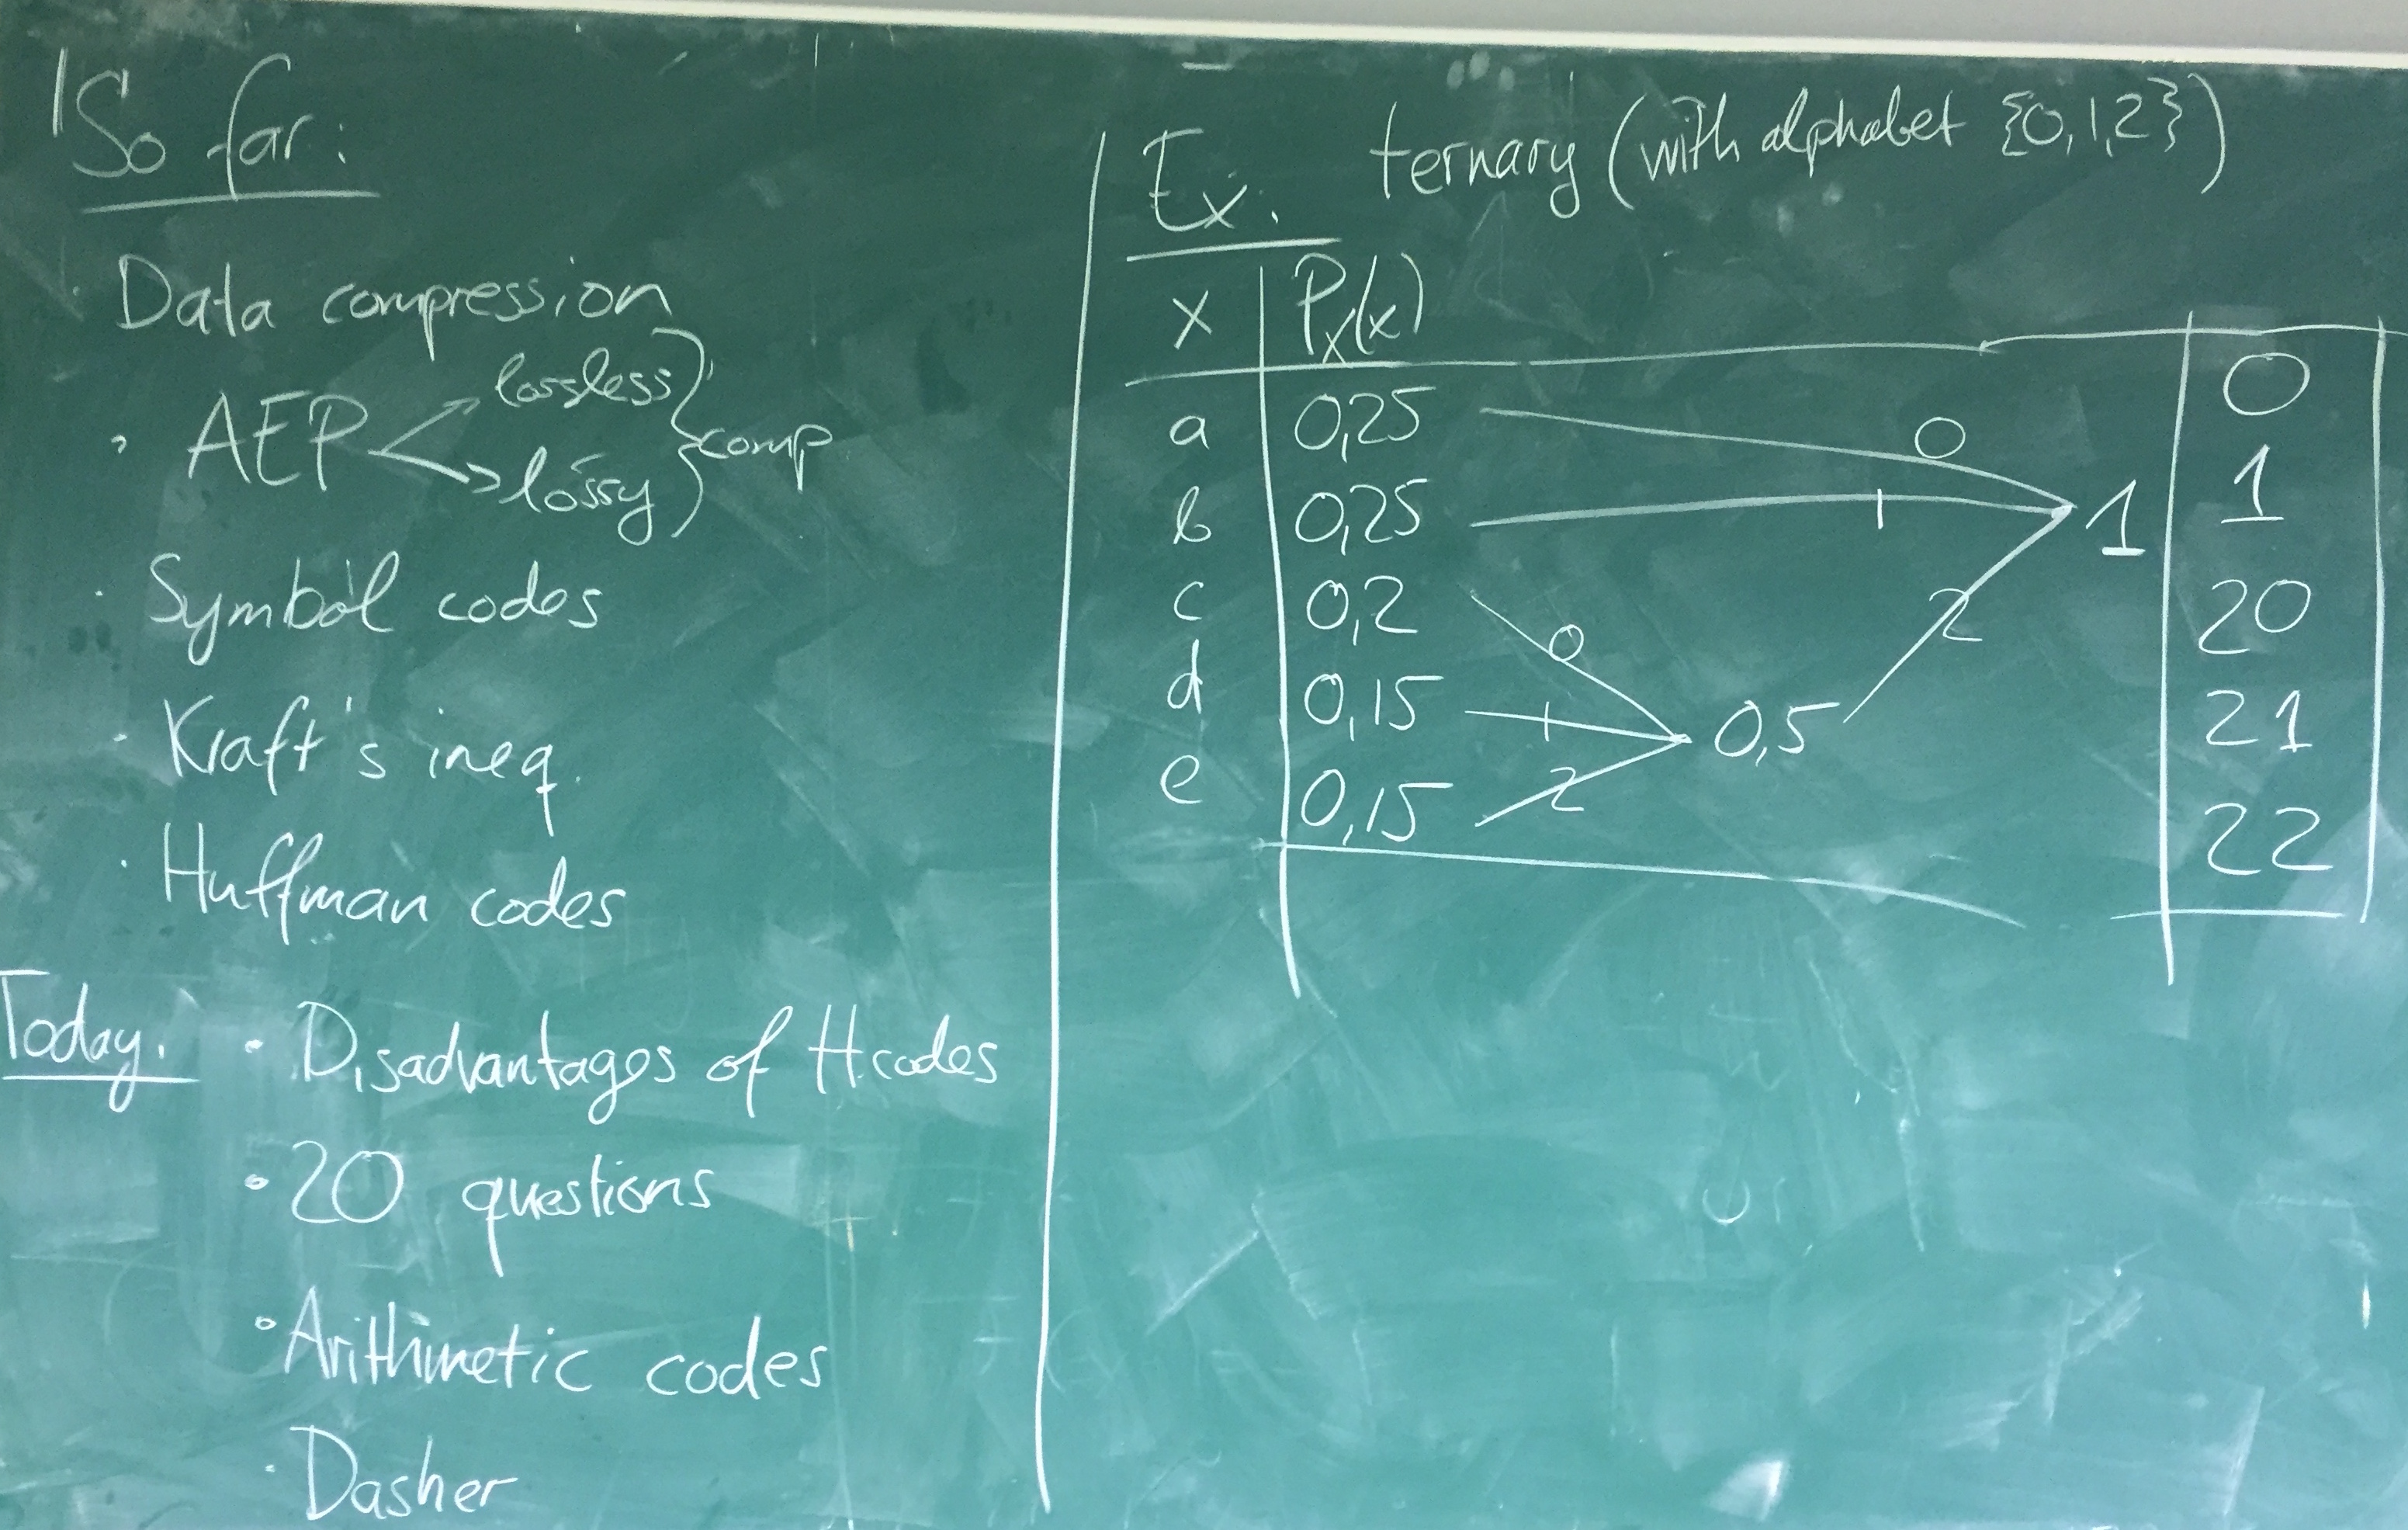 So far:
Data compression
· AEP lossless
lossy
comp
· Symbol codes
· Kraft's ineq.
· Huffman codes
Today.
· Disadvantages of H codes
· 20 questions
· Arithmetic codes
· Dasher
Ex. ternary (with alphabet {0,1,2})
x P_X(x)
a 0,25 0 0
b 0,25 1 1 1
c 0,2 0 2 20
d 0,15 1 0,5 21
e 0,15 2 22